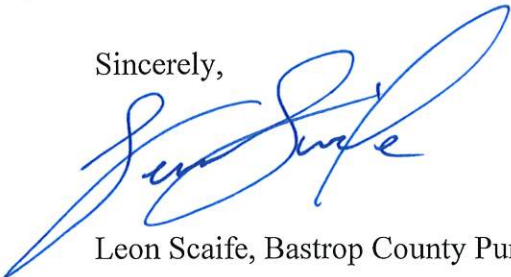 Sincerely,
Leon Scaife
Leon Scaife, Bastrop County Pu